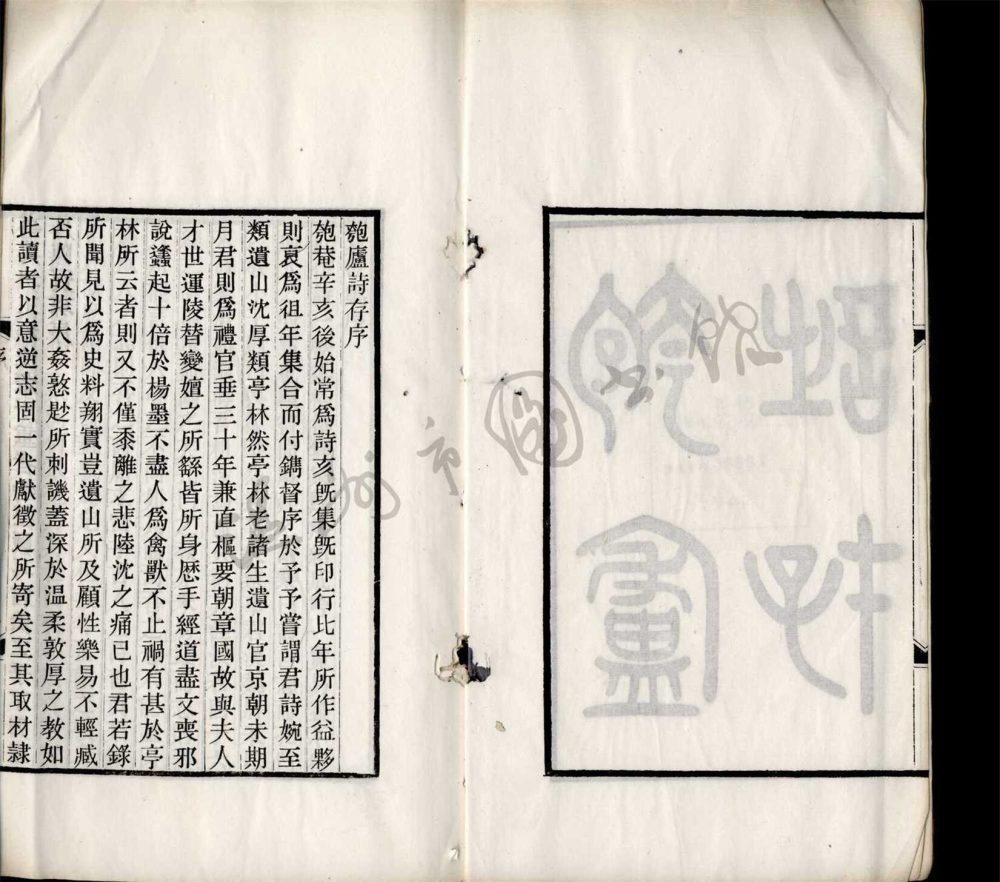 匏廬詩存序
匏菴辛亥後始常爲詩亥旣集旣印行比年所作益夥
則裒爲徂年集合而付鐫督序於予予嘗謂君詩婉至
類遺山沈厚類亭林然亭林老諸生遺山官京朝未期
月君則爲禮官垂三十年兼直樞要朝章國故與夫人
才世運陵替變嬗之所繇皆所身歴手經道盡文喪邪
說蠭起十倍於楊墨不盡人爲禽獸不止禍有甚於亭
林所云者則又不僅黍離之悲陸沈之痛已也君若錄
所聞見以爲史料翔實豈遺山所及顧性樂易不輕臧
否人故非大姦憝尟所刺譏蓋深於温柔敦厚之教如
此讀者以意逆志固一代獻徵之所寄矣至其取材隷
序